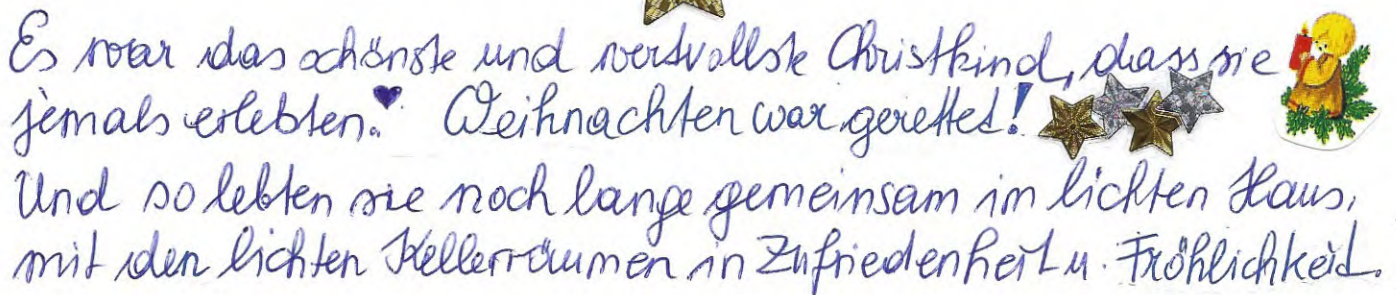 Es war das schönste und wertvollste Christkind, dass sie
jemals erlebten. Weihnachten war gerettet!
Und so lebten sie noch lange gemeinsam im lichten Haus,
mit den lichten Kellerräumen in Zufriedenheit u. Fröhlichkeit.